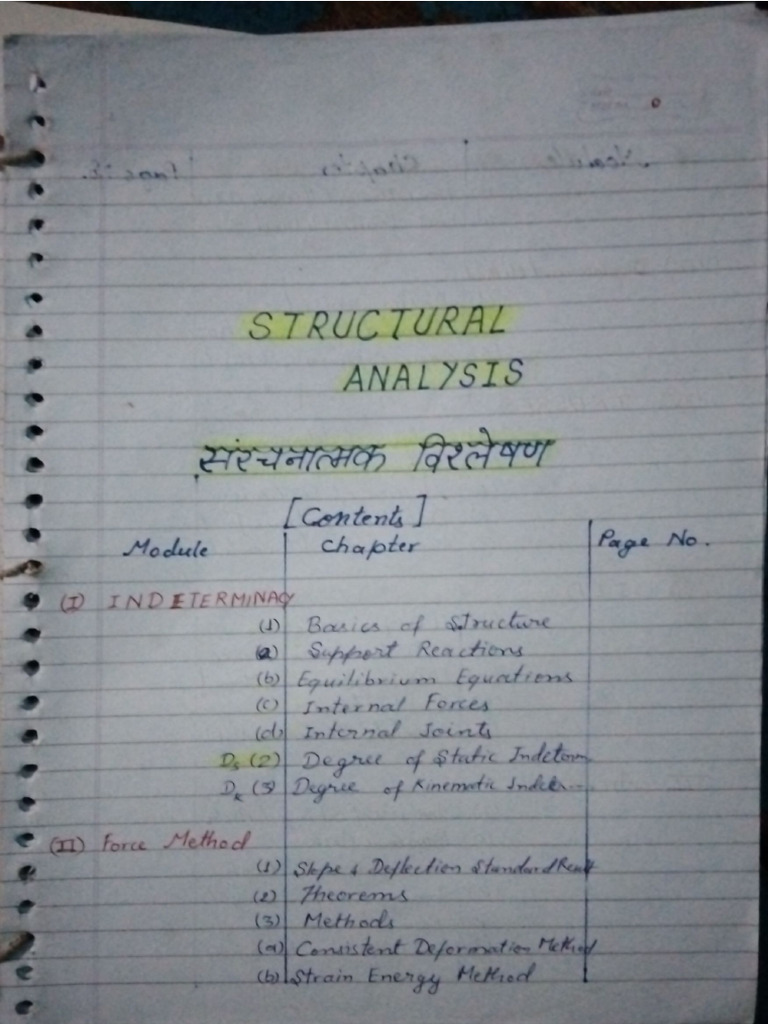 STRUCTURAL
ANALYSIS
संरचनात्मक विश्लेषण
[Contents]
Module Chapter Page No.
(I) INDETERMINACY
(1) Basics of Structure
(a) Support Reactions
(b) Equilibrium Equations
(c) Internal Forces
(d) Internal Joints
Ds (2) Degree of Static Indeterm
Dk (3) Degree of Kinematic Indeter--
(II) Force Method
(1) Slope & Deflection Standard Result
(2) Theorems
(3) Methods
(a) Consistent Deformation Method
(b) Strain Energy Method